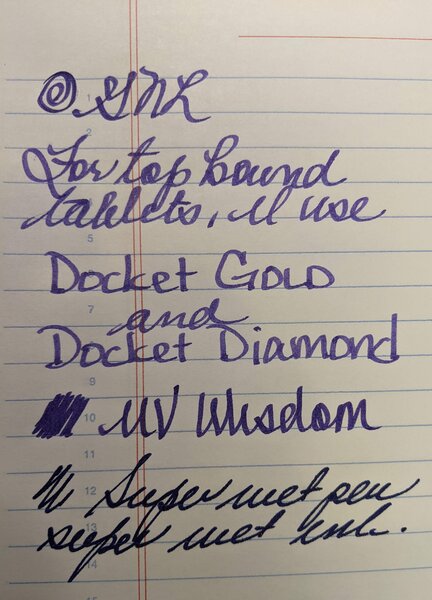 GNL
For top bound
tablets, I use
Docket GOLD
and
Docket Diamond
MV Wisdom
Super wet pen
super wet ink.